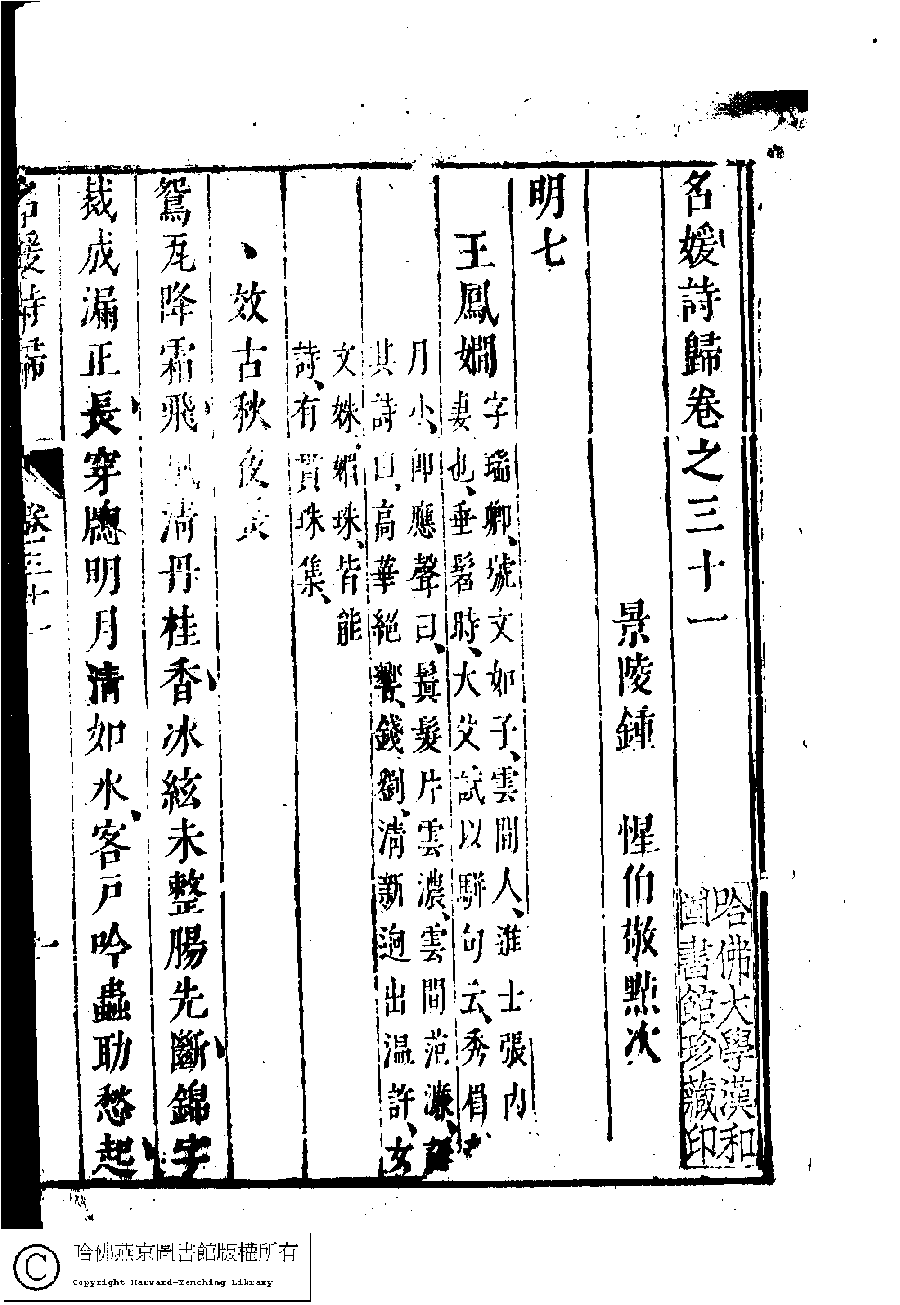 名媛詩歸卷之三十一
景陵鍾 惺伯敬點次
明七
王鳳嫻
字瑞卿、號文如子、雲間人、進士張內
妻也、垂髫時、大父試以駢句云、秀眉
月小、卽應聲曰、鬒髮片雲濃、雲間范濂
其詩曰、高華絕響、錢劉、清新逈出温許、女
文姝、媚珠、皆能
詩、有貫珠集、
效古秋夜長
鴛瓦降霜飛 清丹桂香冰絃未整腸先斷錦字
裁成漏正長穿牕明月清如水客戶吟蟲助愁起
名媛詩歸
卷三十一
一
哈佛大學漢和
圖書館珍藏印
哈佛燕京圖書館版權所有
Copyright Harvard-Yenching Library